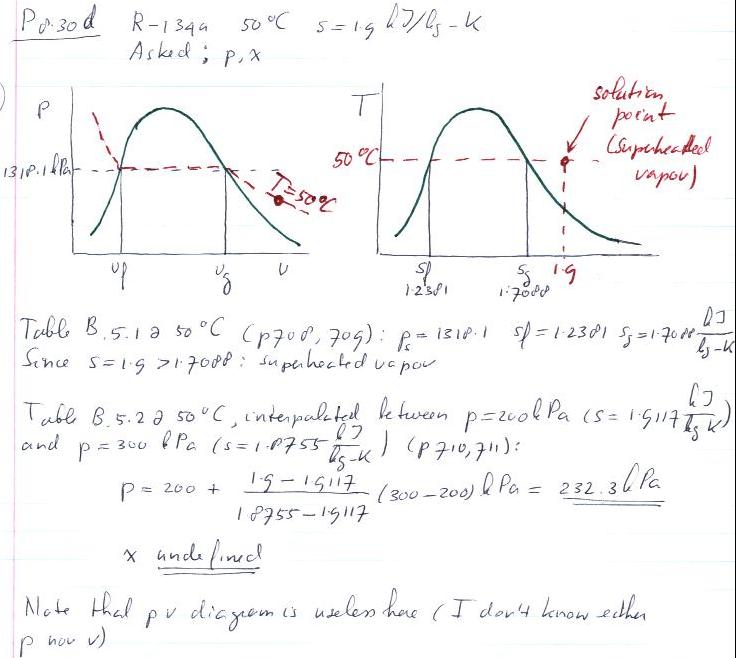 P8.30d R-134a 50°C s=1.9 kJ/kg-K
Asked: p, x
P
1318.1 kPa
T=50°C
vf
vg
v
T
50°C
solution
point
(superheated
vapor)
sf
1.2381
sg
1.7088
1.9
Table B.5.1 @ 50°C (p708, 709): ps = 1318.1 sf = 1.2381 sg = 1.7088 kJ/kg-K
Since s = 1.9 > 1.7088: superheated vapor
Table B.5.2 @ 50°C, interpolated between p=200 kPa (s = 1.9117 kJ/kg K)
and p = 300 kPa (s = 1.8755 kJ/kg-K) (p710, 711):
p = 200 + (1.9 - 1.9117)/(1.8755 - 1.9117) (300-200) kPa = 232.3 kPa
x undefined
Note that pv diagram is useless here (I don't know either
p nor v)